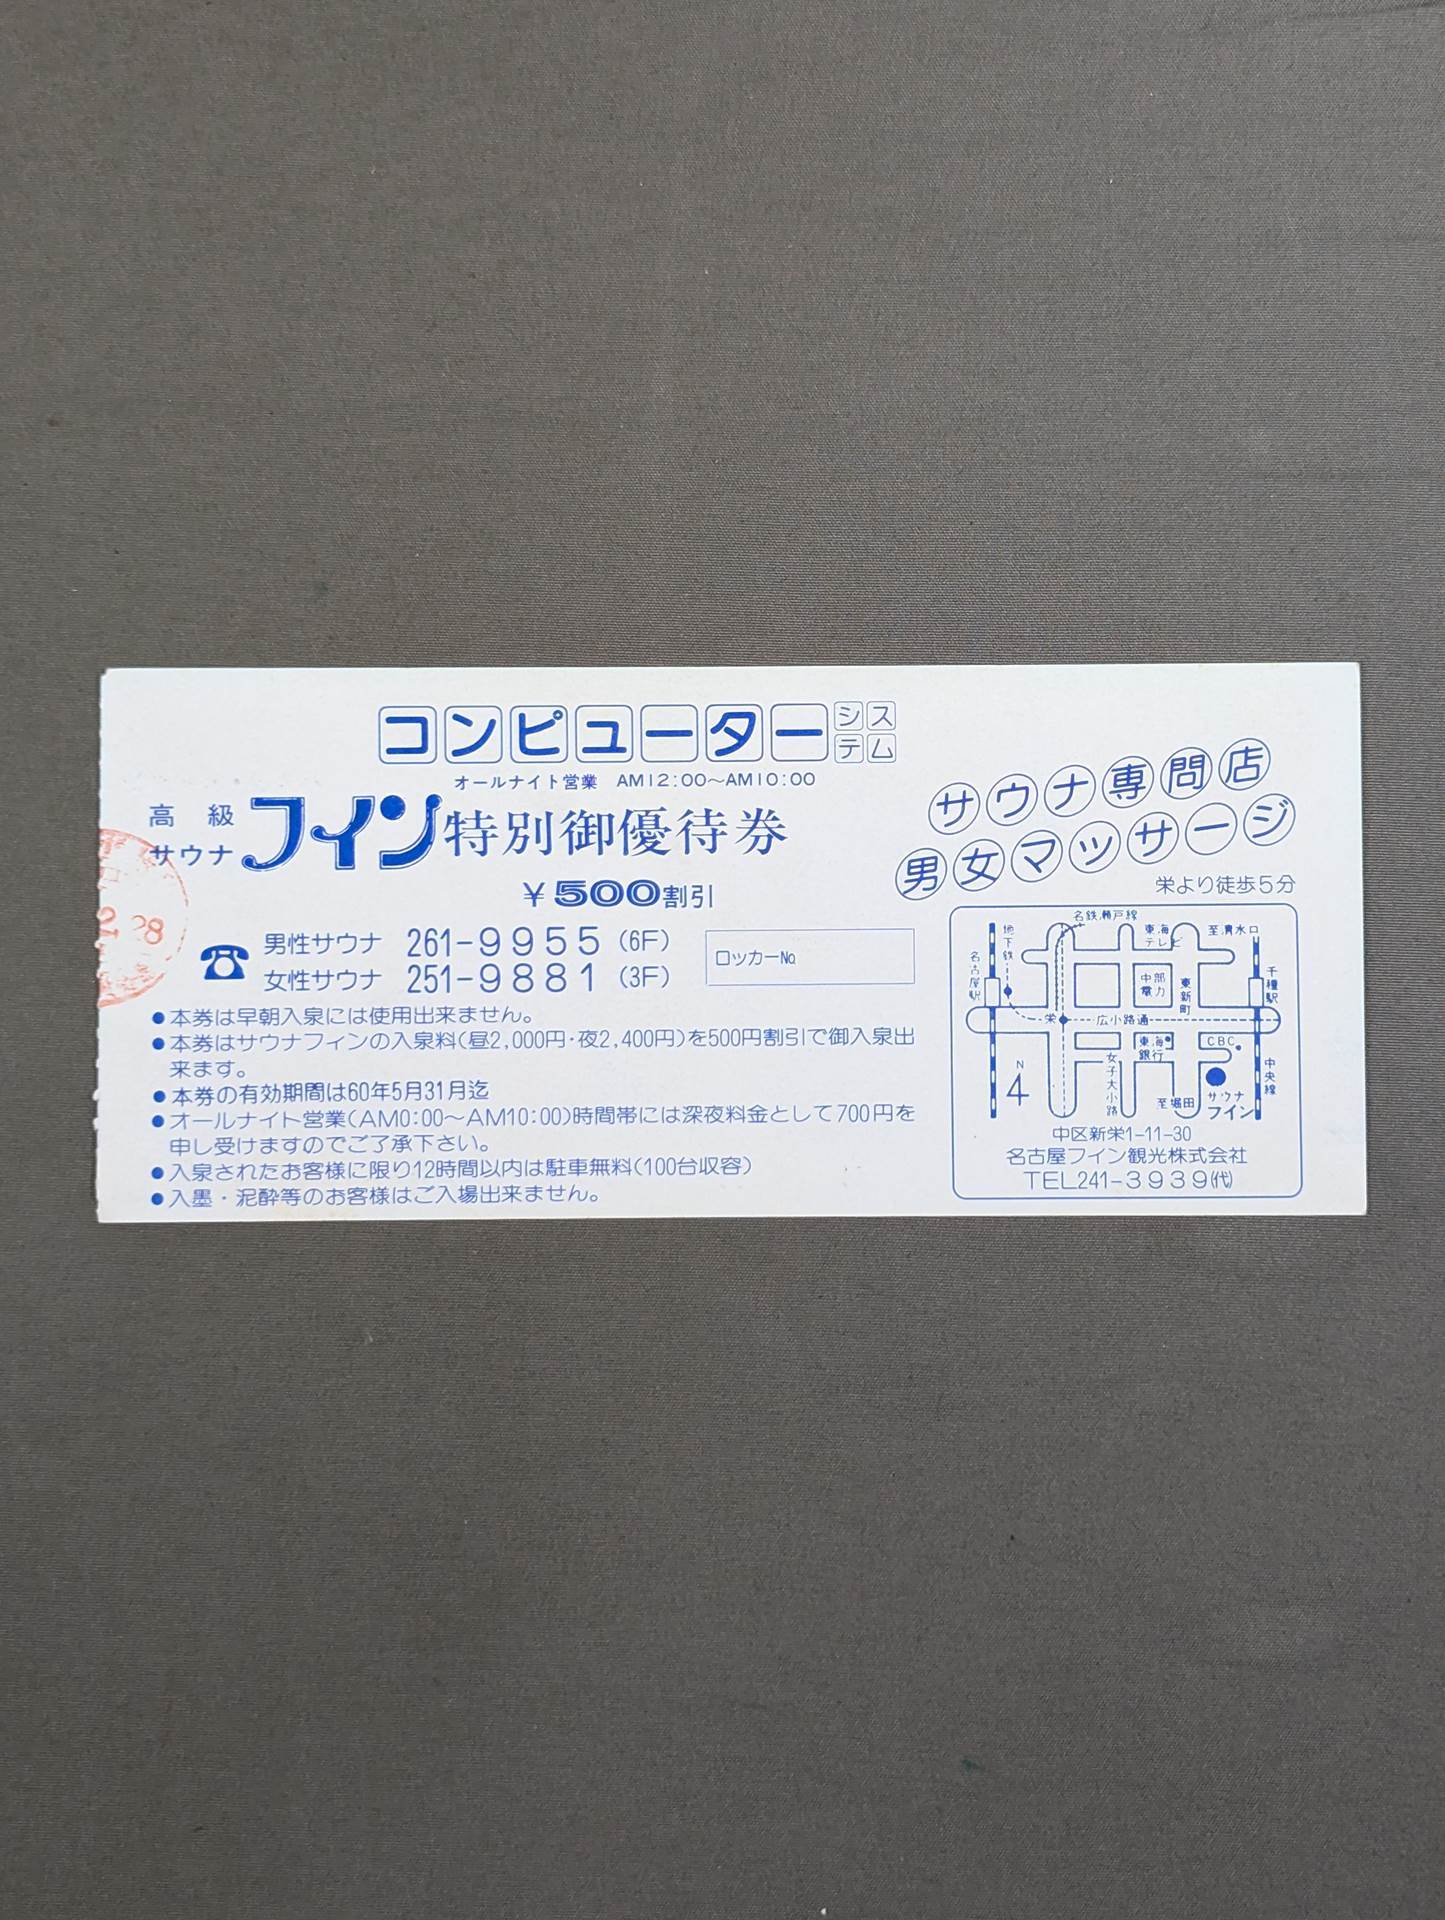 コンピューターシステム
オールナイト営業 AM12:00～AM10:00
高級
サウナ
フイン特別御優待券
¥500割引
男性サウナ 261-9955(6F)
女性サウナ 251-9881(3F)
ロッカーNo.
●本券は早朝入泉には使用出来ません。
●本券はサウナフィンの入泉料(昼2,000円・夜2,400円)を500円割引で御入泉出
来ます。
●本券の有効期間は60年5月31月迄
●オールナイト営業(AM0:00～AM10:00)時間帯には深夜料金として700円を
申し受けますのでご了承下さい。
●入泉されたお客様に限り12時間以内は駐車無料(100台収容)
●入墨・泥酔等のお客様はご入場出来ません。
サウナ専問店
男女マッサージ
栄より徒歩5分
名鉄瀬戸線
地下鉄
東海テレビ
至清水口
名古屋駅
中部電力
東新町
千種駅
栄
広小路通
東海銀行
CBC
女子大小路
中央線
N
至堀田
サウナ
フイン
中区新栄1-11-30
名古屋フイン観光株式会社
TEL241-3939(代)